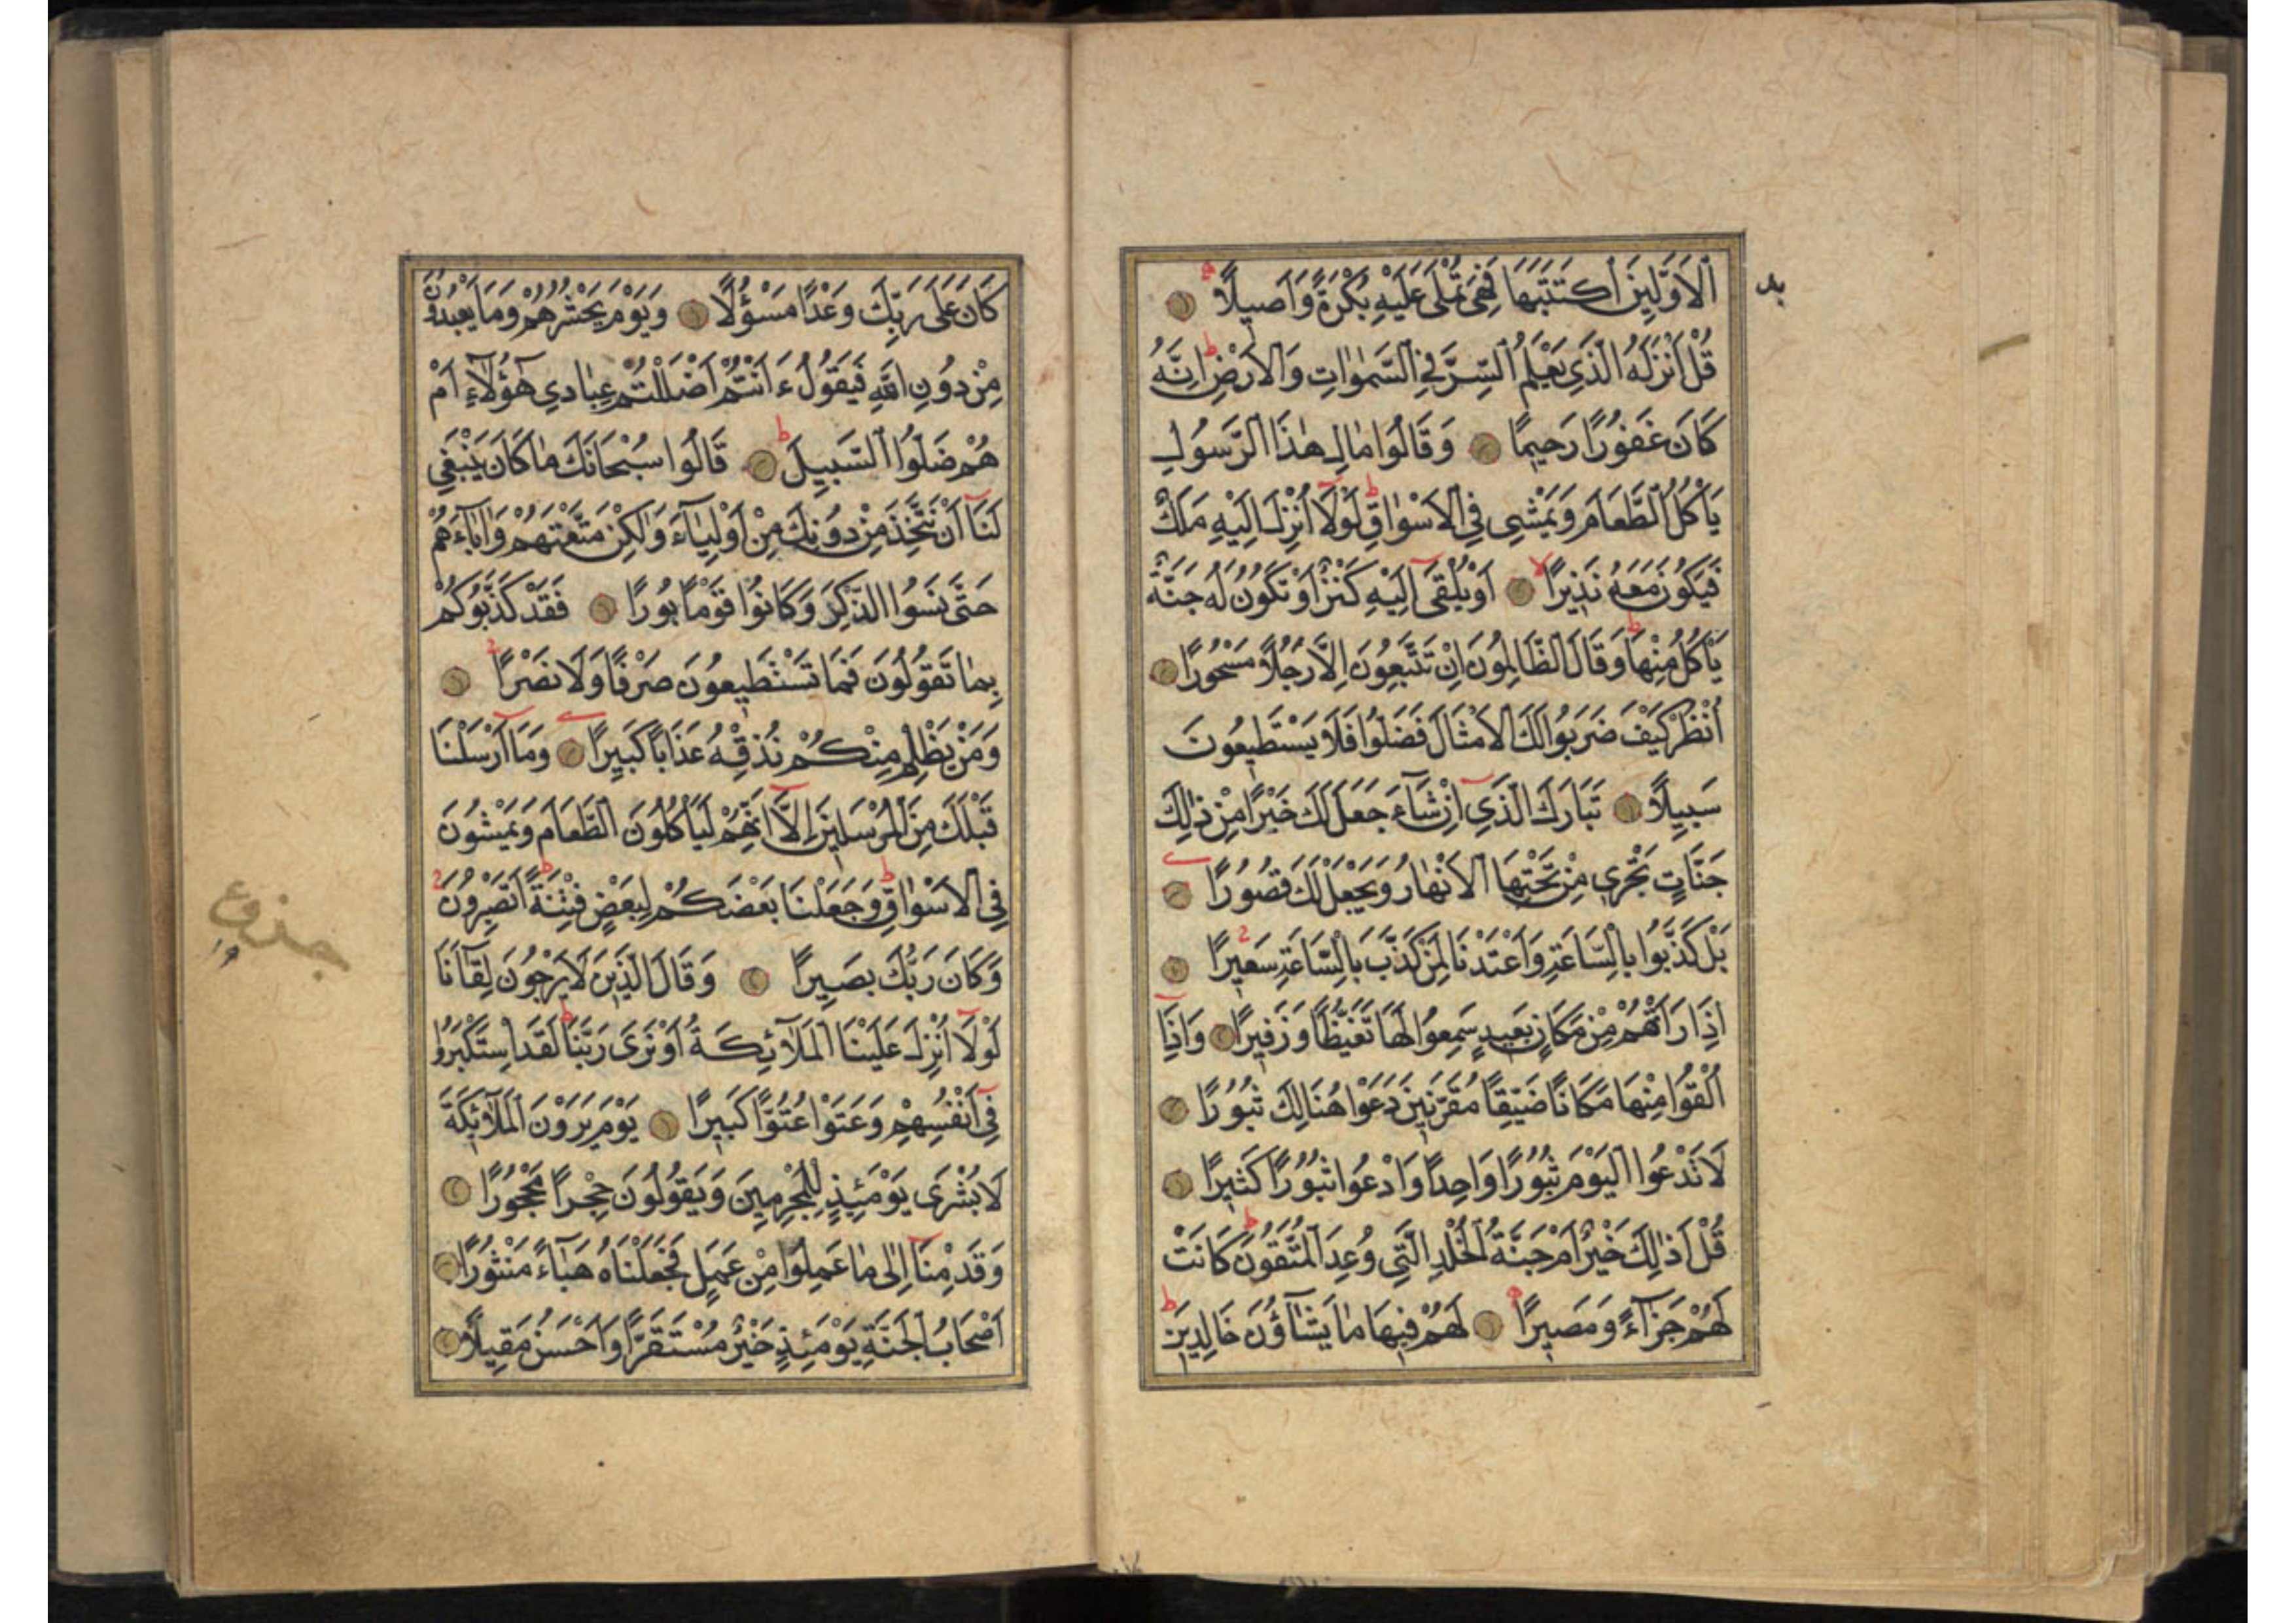 اَلْاَوَّلِينَ اكْتَتَبَهَا فَهِيَ تُمْلٰى عَلَيْهِ بُكْرَةً وَاَصِيلًا
قُلْ اَنْزَلَهُ الَّذِي يَعْلَمُ السِّرَّ فِي السَّمٰوَاتِ وَالْاَرْضِ اِنَّهُ
كَانَ غَفُورًا رَحِيمًا وَقَالُوا مَالِ هٰذَا الرَّسُولِ
يَأْكُلُ الطَّعَامَ وَيَمْشِي فِي الْاَسْوَاقِ لَوْلَا اُنْزِلَ اِلَيْهِ مَلَكٌ
فَيَكُونَ مَعَهُ نَذِيرًا اَوْ يُلْقٰى اِلَيْهِ كَنْزٌ اَوْ تَكُونُ لَهُ جَنَّةٌ
يَأْكُلُ مِنْهَا وَقَالَ الظَّالِمُونَ اِنْ تَتَّبِعُونَ اِلَّا رَجُلًا مَسْحُورًا
اُنْظُرْ كَيْفَ ضَرَبُوا لَكَ الْاَمْثَالَ فَضَلُّوا فَلَا يَسْتَطِيعُونَ
سَبِيلًا تَبَارَكَ الَّذِي اِنْ شَاءَ جَعَلَ لَكَ خَيْرًا مِنْ ذٰلِكَ
جَنَّاتٍ تَجْرِي مِنْ تَحْتِهَا الْاَنْهَارُ وَيَجْعَلْ لَكَ قُصُورًا
بَلْ كَذَّبُوا بِالسَّاعَةِ وَاَعْتَدْنَا لِمَنْ كَذَّبَ بِالسَّاعَةِ سَعِيرًا
اِذَا رَاَتْهُمْ مِنْ مَكَانٍ بَعِيدٍ سَمِعُوا لَهَا تَغَيُّظًا وَزَفِيرًا وَاِذَا
اُلْقُوا مِنْهَا مَكَانًا ضَيِّقًا مُقَرَّنِينَ دَعَوْا هُنَالِكَ ثُبُورًا
لَا تَدْعُوا الْيَوْمَ ثُبُورًا وَاحِدًا وَادْعُوا ثُبُورًا كَثِيرًا
قُلْ اَذٰلِكَ خَيْرٌ اَمْ جَنَّةُ الْخُلْدِ الَّتِي وُعِدَ الْمُتَّقُونَ كَانَتْ
لَهُمْ جَزَاءً وَمَصِيرًا لَهُمْ فِيهَا مَا يَشَاؤُنَ خَالِدِينَ
كَانَ عَلٰى رَبِّكَ وَعْدًا مَسْؤُلًا وَيَوْمَ يَحْشُرُهُمْ وَمَا يَعْبُدُونَ
مِنْ دُونِ اللهِ فَيَقُولُ ءَاَنْتُمْ اَضْلَلْتُمْ عِبَادِي هٰؤُلَاءِ اَمْ
هُمْ ضَلُّوا السَّبِيلَ قَالُوا سُبْحَانَكَ مَا كَانَ يَنْبَغِي
لَنَا اَنْ نَتَّخِذَ مِنْ دُونِكَ مِنْ اَوْلِيَاءَ وَلٰكِنْ مَتَّعْتَهُمْ وَاٰبَاءَهُمْ
حَتّٰى نَسُوا الذِّكْرَ وَكَانُوا قَوْمًا بُورًا فَقَدْ كَذَّبُوكُمْ
بِمَا تَقُولُونَ فَمَا تَسْتَطِيعُونَ صَرْفًا وَلَا نَصْرًا
وَمَنْ يَظْلِمْ مِنْكُمْ نُذِقْهُ عَذَابًا كَبِيرًا وَمَا اَرْسَلْنَا
قَبْلَكَ مِنَ الْمُرْسَلِينَ اِلَّا اِنَّهُمْ لَيَأْكُلُونَ الطَّعَامَ وَيَمْشُونَ
فِي الْاَسْوَاقِ وَجَعَلْنَا بَعْضَكُمْ لِبَعْضٍ فِتْنَةً اَتَصْبِرُونَ
وَكَانَ رَبُّكَ بَصِيرًا وَقَالَ الَّذِينَ لَا يَرْجُونَ لِقَاءَنَا
لَوْلَا اُنْزِلَ عَلَيْنَا الْمَلَائِكَةُ اَوْ نَرٰى رَبَّنَا لَقَدِ اسْتَكْبَرُوا
فِي اَنْفُسِهِمْ وَعَتَوْا عُتُوًّا كَبِيرًا يَوْمَ يَرَوْنَ الْمَلَائِكَةَ
لَا بُشْرٰى يَوْمَئِذٍ لِلْمُجْرِمِينَ وَيَقُولُونَ حِجْرًا مَحْجُورًا
وَقَدِمْنَا اِلٰى مَا عَمِلُوا مِنْ عَمَلٍ فَجَعَلْنَاهُ هَبَاءً مَنْثُورًا
اَصْحَابُ الْجَنَّةِ يَوْمَئِذٍ خَيْرٌ مُسْتَقَرًّا وَاَحْسَنُ مَقِيلًا